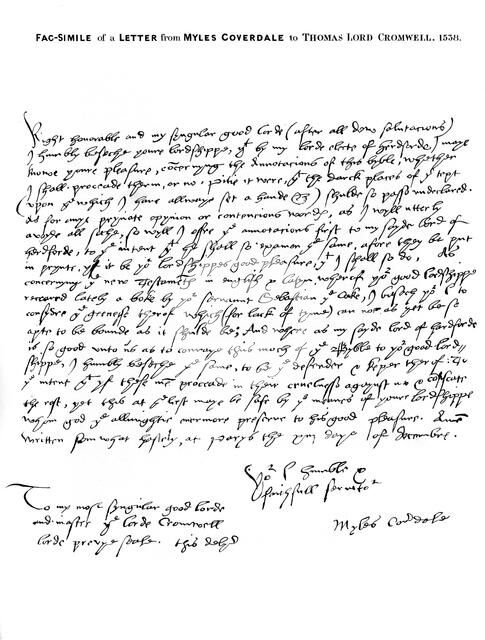 FAC-SIMILE of a LETTER from MYLES COVERDALE to THOMAS LORD CROMWELL. 1538.
Right honorable and my syngular good lorde (after all dew salutacions)
I humbly beseche youre lordshippe, yt by my lorde electe of herdforde, I maye
knowe youre pleasure, concernyng the annotacions of this byble, whether
I shall proceade therin, or no. Pitie it were, yt the darck places of ye text
(upon ye which I have allwaye set a hande) shulde so passe undeclared.
As for anye pryvate opynion or contencious wordes, as I wyll utterly
avoyde all soche, so wyll I offre ye annotacions first to my sayde lord of
herdforde, to ye intent yt he shall so examen ye same, afore they be put
in prynte, yf it be yor lordshippes good pleasure, yt I shall so do. As
concernyng ye new Testamente in english & latyn wherof yor good lordshippe
receaved lately a boke by yor servaunt Sebastian ye Coke, I besech yor L to
considre ye grenesse therof which (for lack of tyme) can not as yet be so
apte to be bounde as it shulde be; And where as my sayde lord of herdforde
is so good unto us as to convaye this moch of ye Byble to yor good lord-
shippe, I humbly beseche ye same, to be ye defender & keper therof: To
ye intent yt yf these men proceade in their cruelnesse agaynst us & confiscate
the rest, yet this at ye lest maye be safe by ye meanes of youre lordshippe
whom god ye allmightie evermore preserve to his good pleasure. Amen
Written somwhat hastely, at Parys the daye of decembre.
Yor L humble &
faithfull servitor
Myles Coverdale
To my most syngular good lorde
and master ye lorde Cromwell
lorde prevye seale. this delyvered